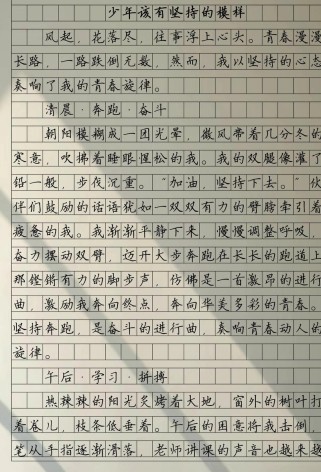 少年该有坚持的模样
风起，花落尽，往事浮上心头。青春漫漫
长路，一路跌倒无数，然而，我以坚持的心态
奏响了我的青春旋律。
清晨·奔跑·奋斗
朝阳模糊成一团光晕，微风带着几分冬的
寒意，吹拂着睡眼惺松的我。我的双腿像灌了
铅一般，步伐沉重。“加油，坚持下去。”伙
伴们鼓励的话语犹如一双双有力的臂膀牵引着
疲惫的我。我渐渐平静下来，慢慢调整呼吸，
奋力摆动双臂，迈开大步奔跑在长长的跑道上
那铿锵有力的脚步声，仿佛是一首激昂的进行
曲，激励我奔向终点，奔向华美多彩的青春。
坚持奔跑，是奋斗的进行曲，奏响青春动人的
旋律。
午后·学习·拼搏
热辣辣的阳光炙烤着大地，窗外的树叶打
着卷儿，枝条低垂着。午后的困意将我击倒，
笔从手指逐渐滑落，老师讲课的声音也越来越